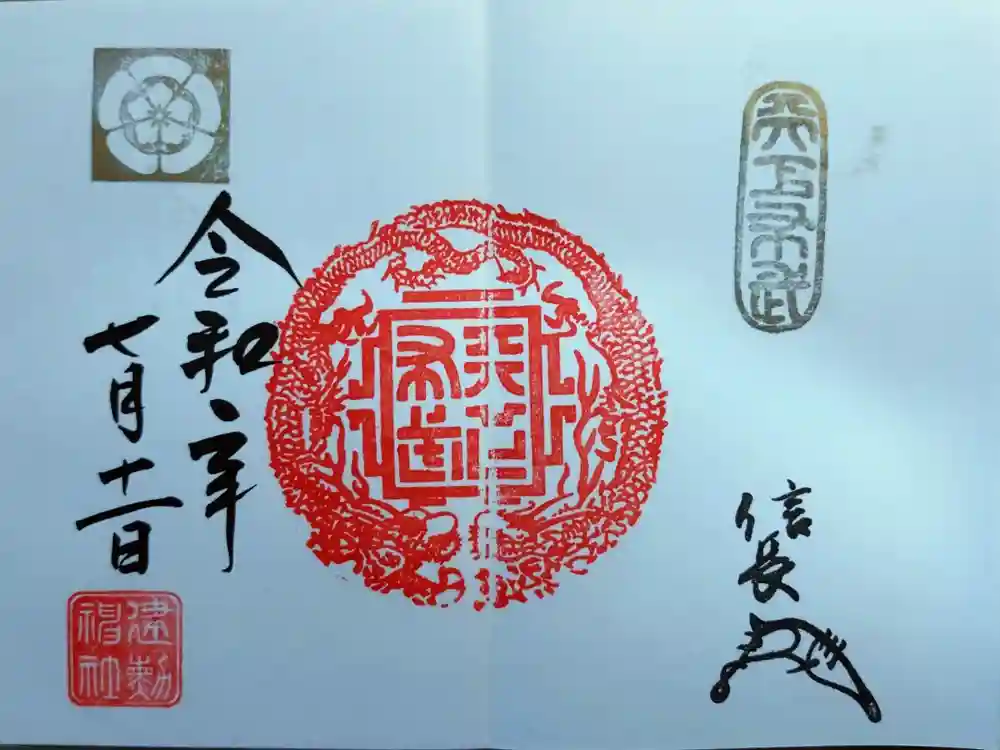 天下布武
信長
天下
布武
令和二年
七月十一日
建勲
神社